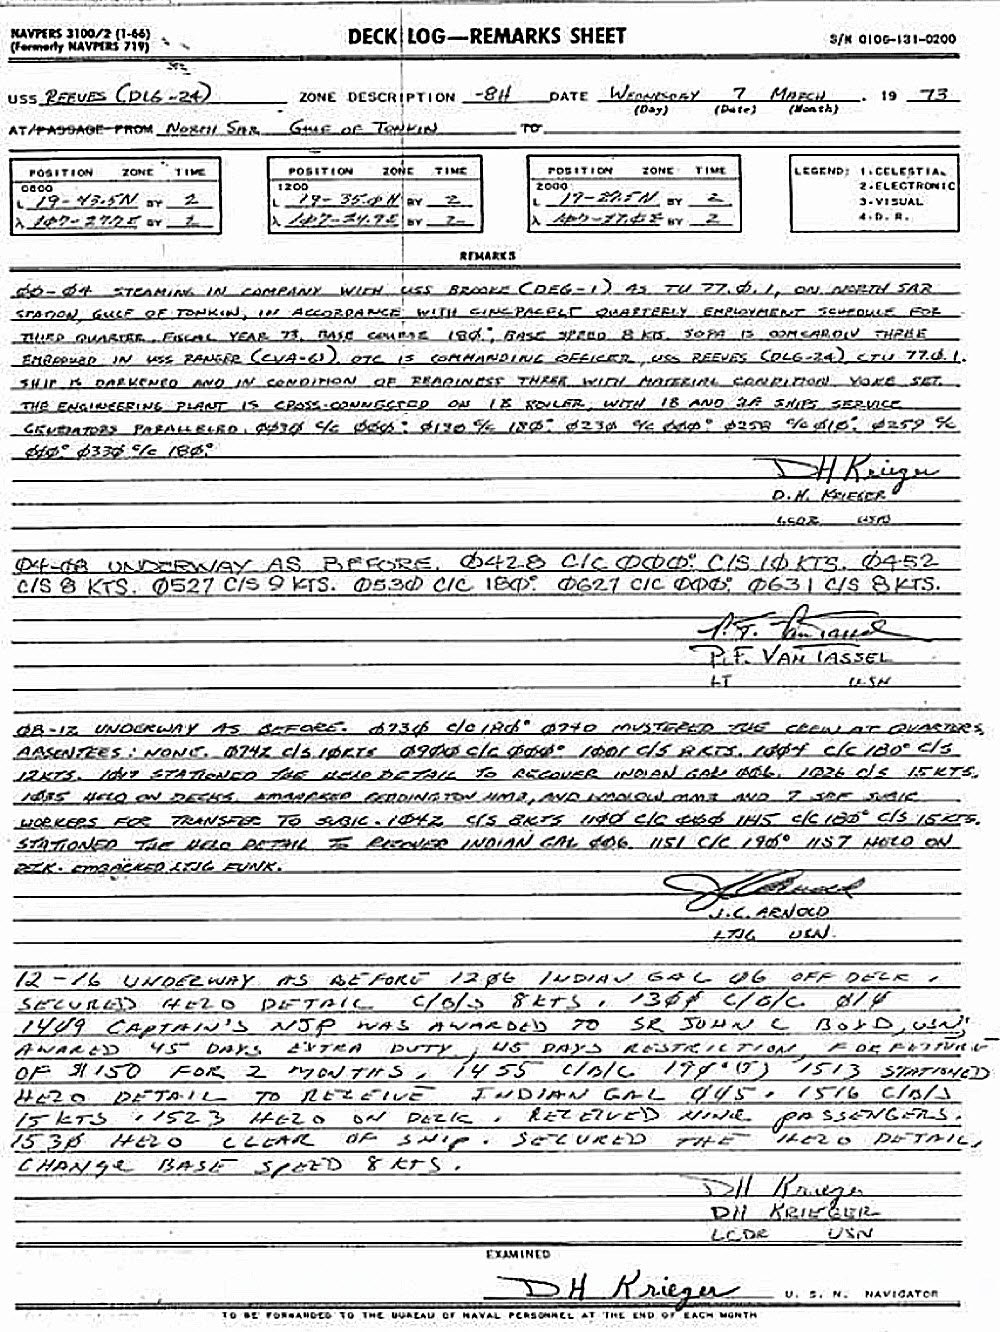 NAVPERS 3100/2 (1-66)
(Formerly NAVPERS 719)
DECK LOG—REMARKS SHEET
S/N 0106-131-0200
USS REEVES (DLG-24) ZONE DESCRIPTION -8H DATE WEDNESDAY 7 MARCH, 19 73
(Day) (Date) (Month)
AT/PASSAGE FROM NORTH SAR GULF OF TONKIN TO
POSITION ZONE TIME
0800
L 19-43.5N BY 2
λ 1Ø7-27.7E BY 2
POSITION ZONE TIME
1200
L 19-35.0N BY 2
λ 1Ø7-24.9E BY 2
POSITION ZONE TIME
2000
L BY 2
λ BY 2
LEGEND: 1-CELESTIAL
2-ELECTRONIC
3-VISUAL
4-D. R.
REMARKS
ØØ-Ø4 STEAMING IN COMPANY WITH USS BROOKE (DEG-1) AS TU 77.Ø.1, ON NORTH SAR
STATION, GULF OF TONKIN, IN ACCORDANCE WITH CINCPACFLT QUARTERLY EMPLOYMENT SCHEDULE FOR
THIRD QUARTER, FISCAL YEAR 73. BASE COURSE 18Ø°, BASE SPEED 8 KTS. SOPA IS COMCARDIV THREE
EMBARKED IN USS RANGER (CVA-61), OTC IS COMMANDING OFFICER, USS REEVES (DLG-24) CTU 77.Ø.1.
SHIP IS DARKENED AND IN CONDITION OF READINESS THREE WITH MATERIAL CONDITION YOKE SET.
THE ENGINEERING PLANT IS CROSS-CONNECTED ON 1B BOILER, WITH 1B AND 2A SHIPS SERVICE
GENERATORS PARALLELED. ØØ3Ø C/C ØØØ° Ø13Ø C/C 18Ø° Ø23Ø C/C ØØØ° Ø258 C/C Ø1Ø° Ø259 C/C
Ø1Ø° Ø33Ø C/C 18Ø°
DH Krieger
D.H. KRIEGER
LCDR USN
Ø4-Ø8 UNDERWAY AS BEFORE. Ø428 C/C ØØØ° C/S 1Ø KTS. Ø452
C/S 8 KTS. Ø527 C/S 9 KTS. Ø53Ø C/C 18Ø° Ø627 C/C ØØØ° Ø631 C/S 8 KTS.
P.F. Van Tassel
P.F. VAN TASSEL
LT USN
Ø8-12 UNDERWAY AS BEFORE. Ø73Ø C/C 18Ø° Ø74Ø MUSTERED THE CREW AT QUARTERS,
ABSENTEES: NONE. Ø742 C/S 1Ø KTS Ø9ØØ C/C ØØØ° 1ØØ1 C/S 8 KTS. 1ØØ4 C/C 18Ø° C/S
12 KTS. 1Ø17 STATIONED THE HELO DETAIL TO RECOVER INDIAN GAL ØØ6. 1Ø26 C/S 15 KTS.
1Ø35 HELO ON DECK. EMBARKED HM2, AND MM3 AND 7 SRF SUBIC
WORKERS FOR TRANSFER TO SUBIC. 1Ø42 C/S 8 KTS 11ØØ C/C ØØØ 1145 C/C 18Ø° C/S 15 KTS.
STATIONED THE HELO DETAIL TO RECOVER INDIAN GAL ØØ6. 1151 C/C 19Ø° 1157 HELO ON
DECK. EMBARKED LTJG FUNK.
JC Arnold
J.C. ARNOLD
LTJG USN.
12-16 UNDERWAY AS BEFORE 12Ø6 INDIAN GAL ØØ6 OFF DECK,
SECURED HELO DETAIL C/B/S 8 KTS, 13ØØ C/B/C Ø1Ø
14Ø9 CAPTAIN'S NJP WAS AWARDED TO SR JOHN C BOYD, USN,
AWARED 45 DAYS EXTRA DUTY, 45 DAYS RESTRICTION, FORFEITURE
OF $150 FOR 2 MONTHS. 1455 C/B/C 19Ø°(T) 1513 STATIONED
HELO DETAIL TO RECEIVE INDIAN GAL ØØ5. 1516 C/B/S
15 KTS. 1523 HELO ON DECK. RECEIVED NINE PASSENGERS.
153Ø HELO CLEAR OF SHIP. SECURED THE HELO DETAIL,
CHANGE BASE SPEED 8 KTS.
DH Krieger
DH KRIEGER
LCDR USN
EXAMINED
DH Krieger U. S. N. NAVIGATOR
TO BE FORWARDED TO THE BUREAU OF NAVAL PERSONNEL AT THE END OF EACH MONTH